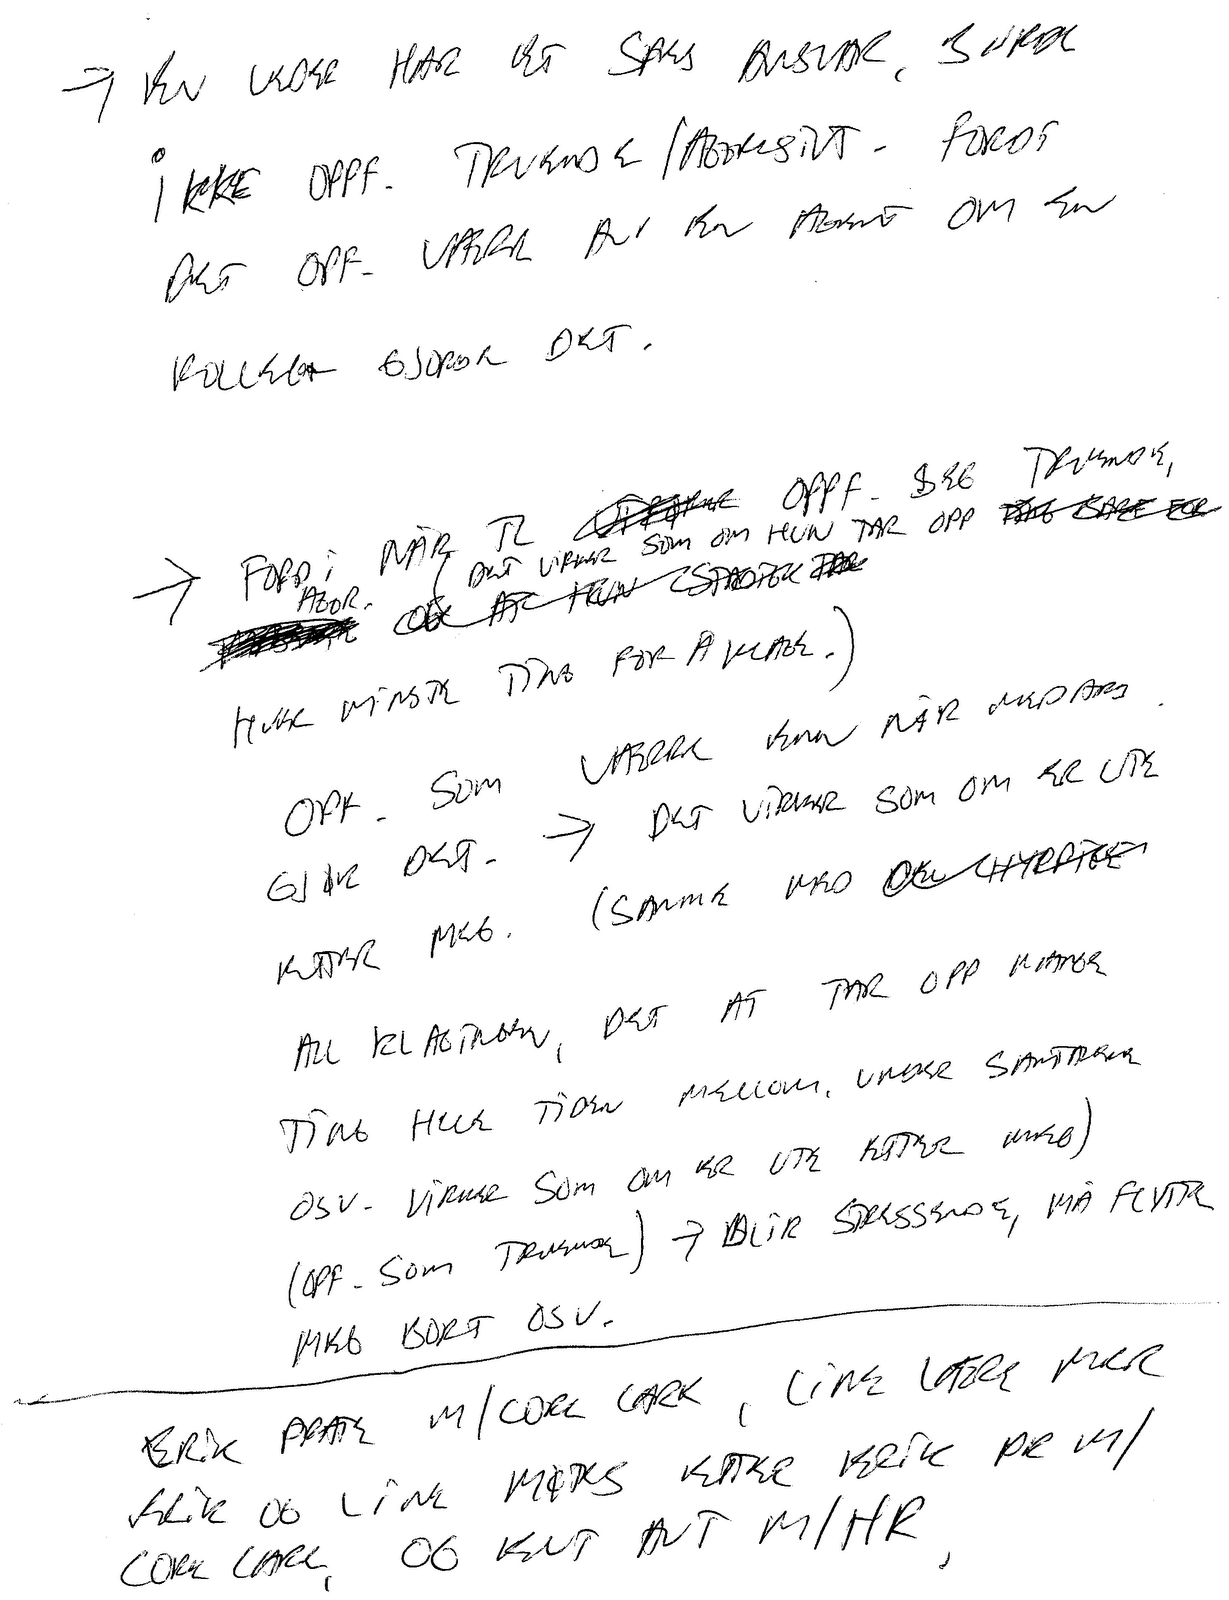 → EN LEDER HAR ET SAKS ANSVAR, BURDE
IKKE OPPF. TRUENDE/AGGRESIVT. FORDI
DET OPF. VÆRRE AV EN AGENT OM EN
KOLLEGA GJORDE DET.
→ FORDI NÅR TL OPPF. SEG TRUENDE,
AGGR. (DET VIRKER SOM OM HUN TAR OPP
HVER MINSTE TING FOR Å KLAGE.)
OPF. SOM VÆRRE ENN NÅR MEDARB.
GJØR DET. → DET VIRKER SOM OM ER UTE
ETTER MEG. (SAMME MED
ALL KLAGINGEN, DET AT TAR OPP MANGE
TING HELE TIDEN MELLOM, UNDER SAMTALER
OSV. VIRKER SOM OM ER UTE ETTER MEG)
(OPF. SOM TRUENDE) → BLIR STRESSENDE, MÅ FLYTTE
MEG BORT OSV.
ERIK PRATE M/CORE CARE, LINE LÆRE MER
ERIK OG LINE MØTES ETTER ERIK PR M/
CORE CARE, OG EVT AVT M/HR,